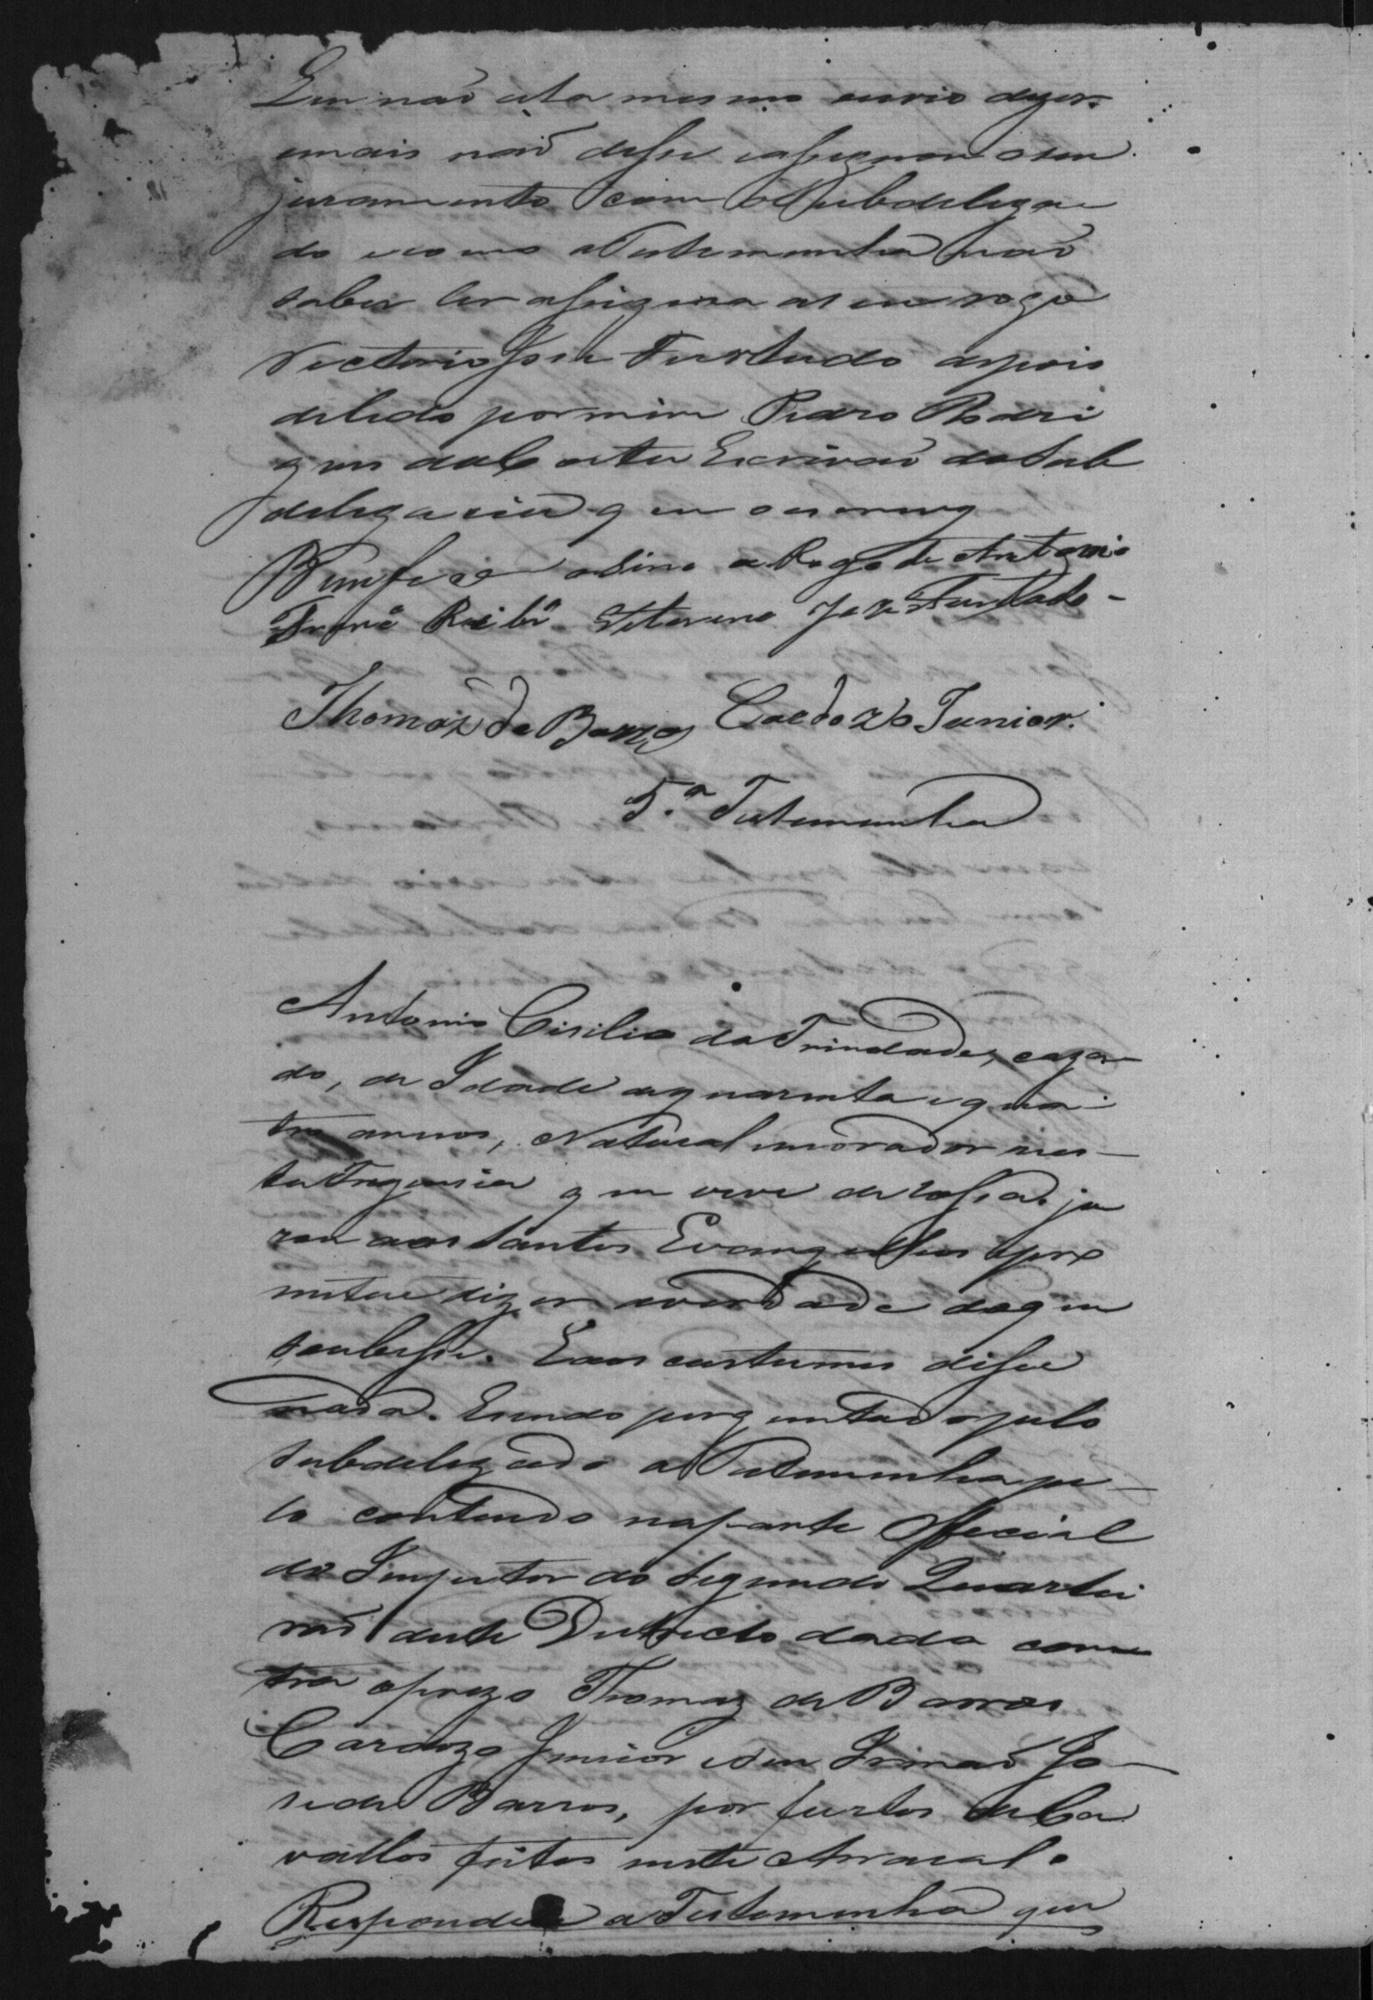 Em não esta mesmo ouvio dizer.
emais não disse eassignou o seu
juramento com o Subdelega
do e como a Testemunha não
sabia ler assigna a seu rogo
Victorio José Furtado depois
de lido por mim Pedro Rodri
gues da Costa Escrivão da Sub
delegacia que o escrevy
Bomfi asino a Rogo de Antonio
Ribrº José Furtado
Thomaz de Barros Cardozo Junior.
5.ª Testemunha
Antonio Cisilio da Trindade, caza
do, de Idade de quarenta e qua
tro annos, Natural morador nes
ta Freguesia que vive de rossa. ju
rou aos Santos Evangelhos e pro
meteu dizer averdade do que
soubesse. E aos custumes disse
nada. E sendo perguntado pelo
Subdelegado a Testemunha pe
lo contheudo na parte Official
do Inspector do Segundo Quartei
rão deste Districto dada con
tra o prezo Thomaz de Barros
Cardozo Junior e seu Irmão Jo
se de Barros, por furtos de Ca
vallos feitos neste Arraial.
Respondeu a Testemunha que